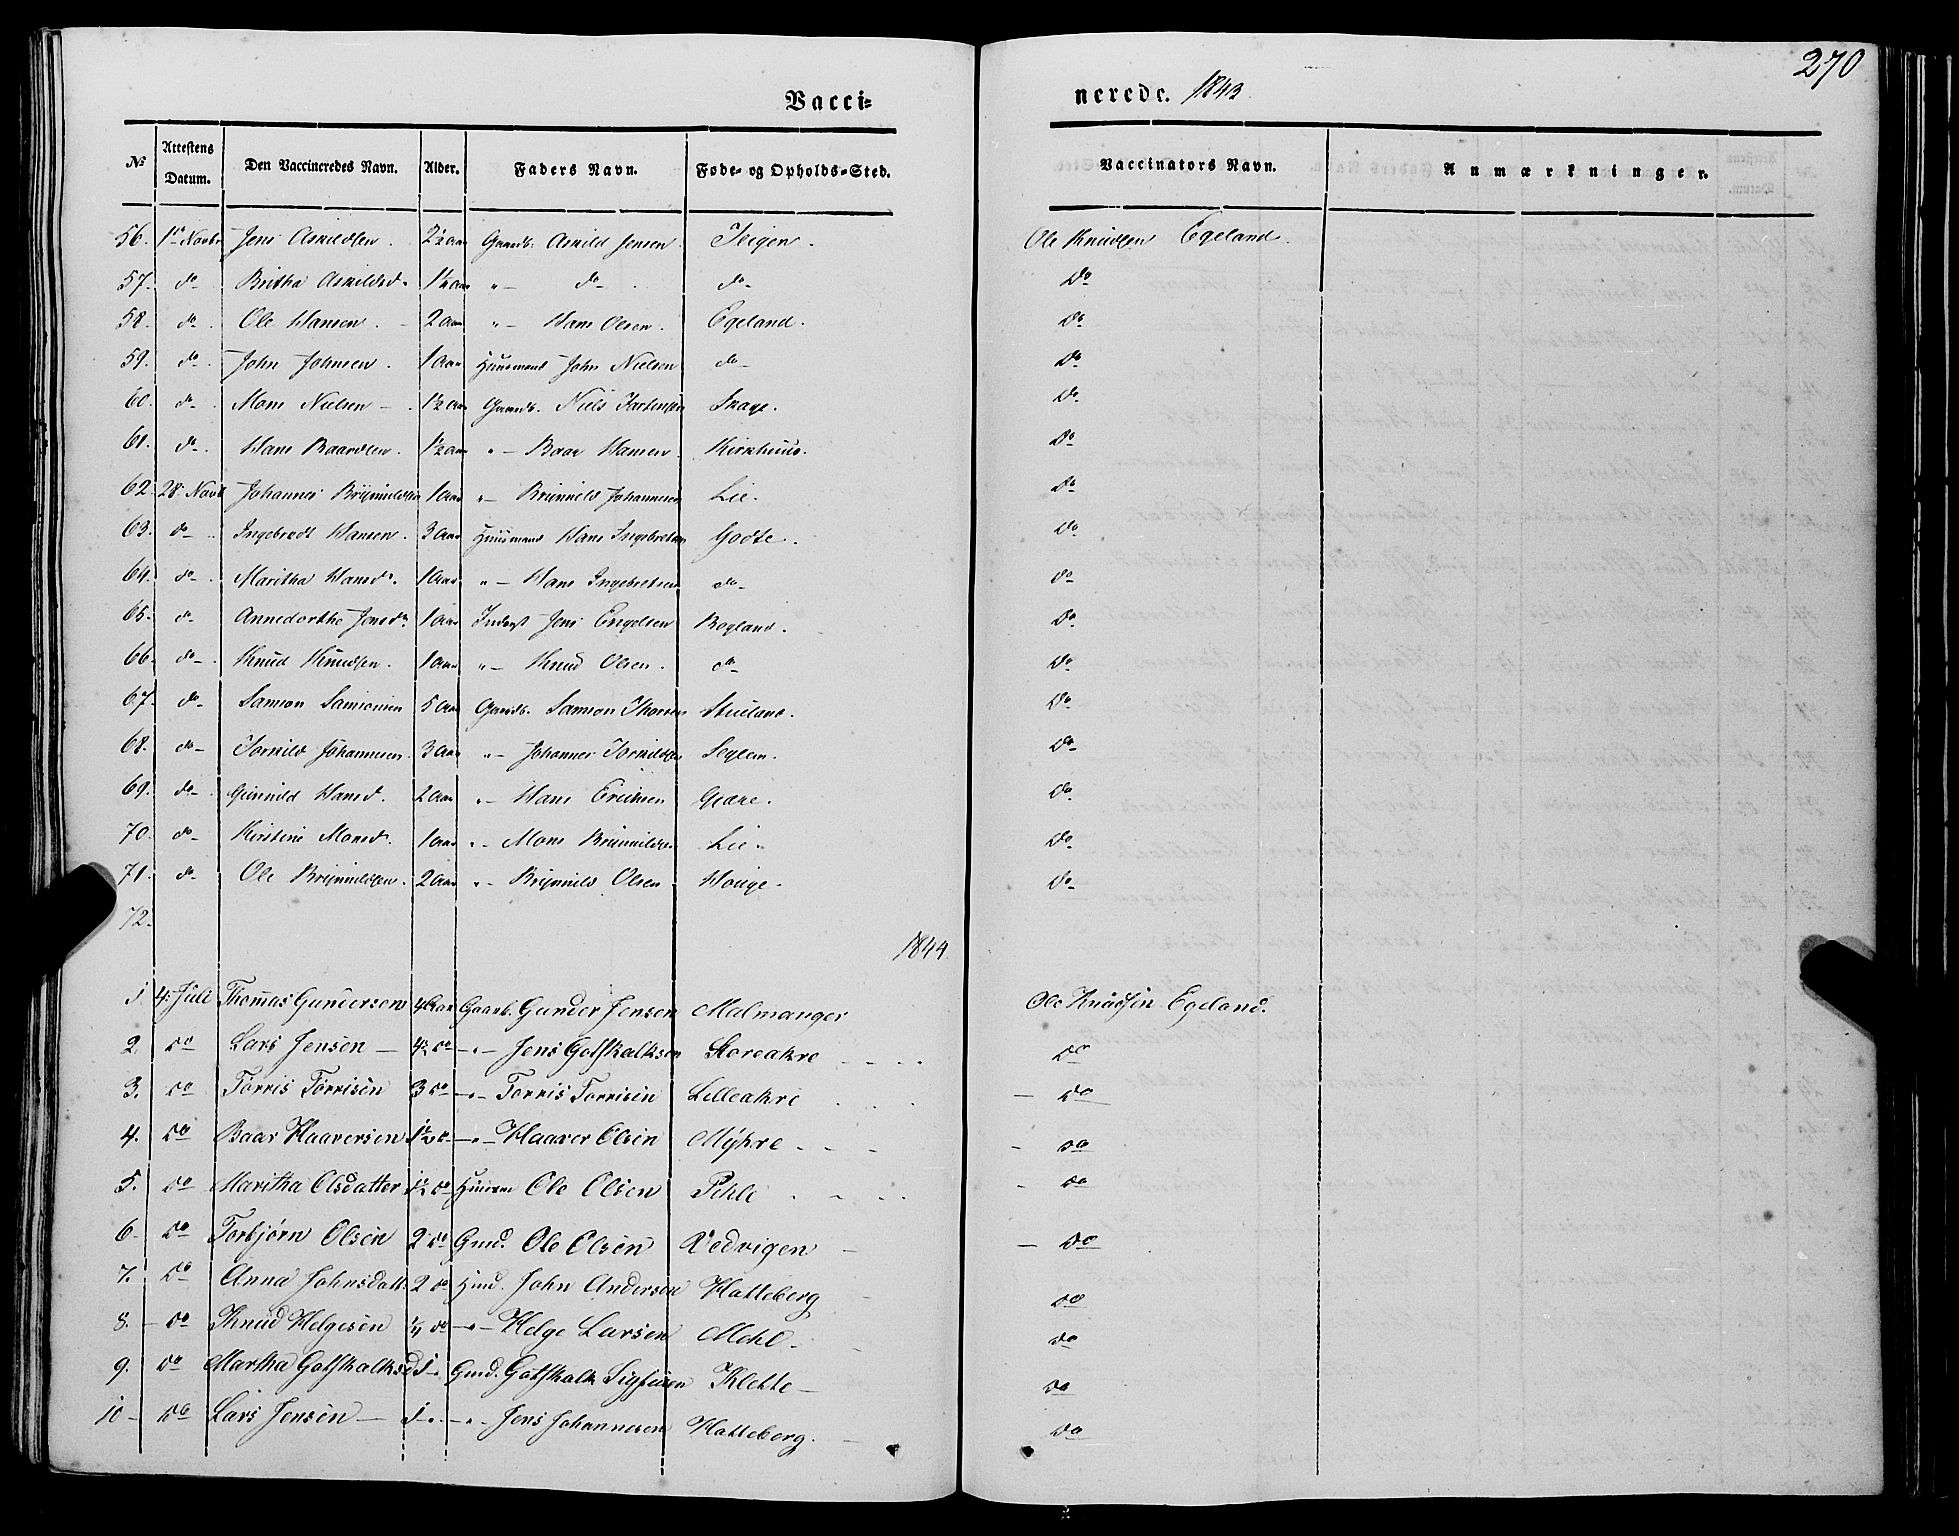 270
Vacci-
nerede. 1843
№ Attestens Datum. Den Vaccineredes Navn. Alder. Faders Navn. Føde- og Opholds-Sted. Vaccinators Navn. Anmærkninger.
56. 1 Novbr Jens Asvildsen. 2½ aar Gaardb. Asvild Jensen Teigen. Ole Knudsen Egeland.
57. do Britha Asvildsd. 1½ aar " do do do
58. do Ole Hansen. 2 aar " Hans Olsen. Egeland. do
59. do John Johnsen. 1 aar Huusmand John Nielsen do do
60. do Mons Nielsen 1½ aar Gaardb. Niels Skage. do
61. do Hans Baardsen. 1½ aar " Baar Hansen Kirkhuus. do
62. 28 Novb Johannes Brynnildsen 1 aar " Brunnild Johannesen Lie. do
63. do Ingebredt Hansen. 3 aar Huusmand Hans Ingebretsen Godte. do
64. do Maritha Hansd. 1 aar " Hans Ingebretsen do do
65. do Annedorthe Jensd. 1 aar Inderst Jens Engelsen Bogland. do
66. do Knud Knudsen. 1 aar " Knud Olsen. do do
67. do Samson Samsonsen 5 aar Gaardb. Samson Thorsen Stueland. do
68. do Tornild Johannesen 3 aar " Johannes Tornildsen Seglem. do
69. do Gunnild Hansd. 2 aar " Hans Erichsen Gjære. do
70. do Kirstine Monsd. 1 aar " Mons Brunnildsen Lie. do
71. do Ole Brynnildsen. 2 aar " Brynnild Olsen Houge. do
72.
1844
1 4: Juli Thomas Gundersen 4 Aar Gaardb. Gunder Jensen Malmanger Ole Knudsen Egeland.
2 do Lars Jensen 4½ do " Jens Gotskalksen Storeakre do
3. do Torris Torrisen 3 do " Torris Torrisen Lilleakre do
4. do Baar Haaversen 1½ do " Haaver Olsen Mykre do
5. do Maritha Olsdatter 1½ do Huusm Ole Olsen Pihle do
6 do Torbjørn Olsen 2 do Gmd. Ole Olsen Vedvigen do
7. do Anna Johnsdatt. 2 do Hmd. John Andersen Hatteberg do
8. do Knud Helgesen ¼ do " Helge Larsen Mehl do
9. do Martha Gotskalksd 1 " Gmd. Gotskalk Sigfusen Klette do
10 do Lars Jensen 1 " " Jens Johannesen Hatteberg. do